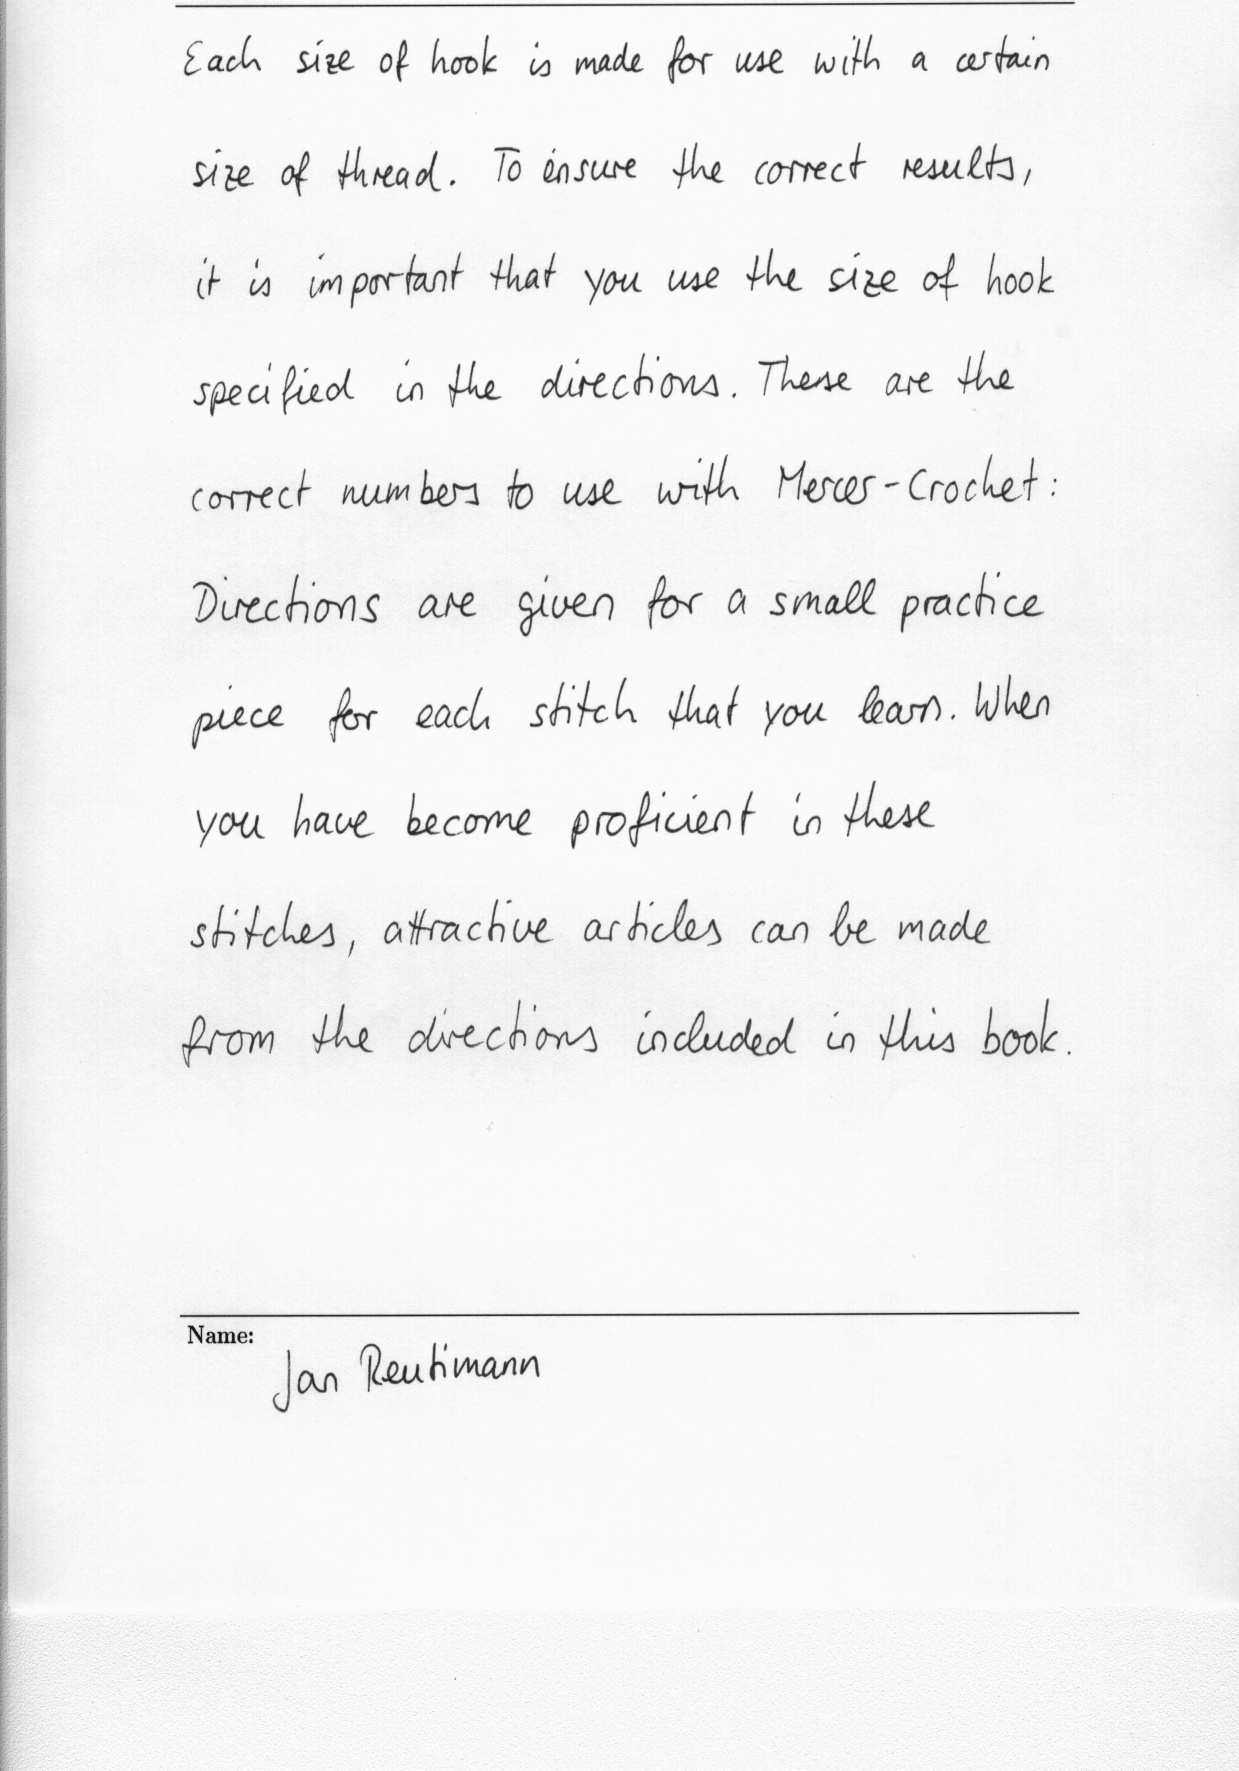 Each size of hook is made for use with a certain
size of thread. To ensure the correct results,
it is important that you use the size of hook
specified in the directions. These are the
correct numbers to use with Mercer-Crochet:
Directions are given for a small practice
piece for each stitch that you learn. When
you have become proficient in these
stitches, attractive articles can be made
from the directions included in this book.
Name:
Jan Reutimann